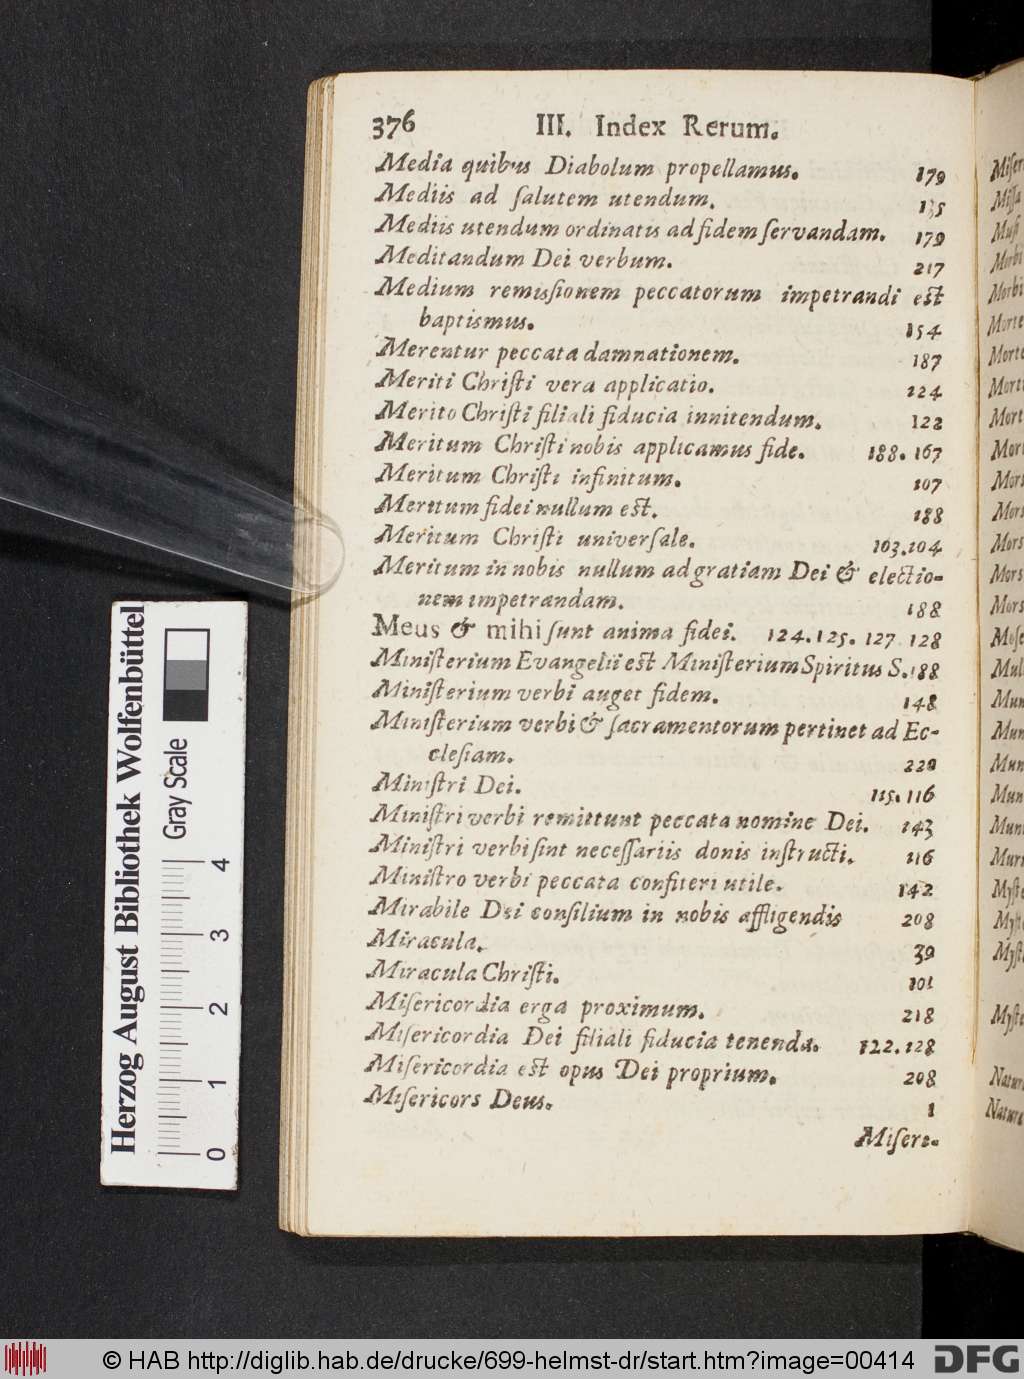 376 III. Index Rerum.
Media quibus Diabolum propellamus. 179
Mediis ad ſalutem utendum. 135
Mediis utendum ordinatis ad fidem ſervandam. 179
Meditandum Dei verbum. 217
Medium remisſionem peccatorum impetrandi est
baptismus. 154
Merentur peccata damnationem. 187
Meriti Chriſti vera applicatio. 124
Merito Chriſti filiali fiducia innitendum. 122
Meritum Chriſti nobis applicamus fide. 188. 167
Meritum Chriſti infinitum. 107
Meritum fidei nullum est. 188
Meritum Chriſti univerſale. 103.104
Meritum in nobis nullum ad gratiam Dei & electio-
nem impetrandam. 188
Meus & mihi ſunt anima fidei. 124. 125. 127. 128
Miniſterium Evangelii est Miniſterium Spiritus S. 188
Miniſterium verbi auget fidem. 148
Miniſterium verbi & ſacramentorum pertinet ad Ec-
cleſiam. 220
Miniſtri Dei. 115. 116
Miniſtri verbi remittunt peccata nomine Dei. 143
Miniſtri verbi ſint neceſſariis donis inſtructi. 116
Miniſtro verbi peccata confiteri utile. 142
Mirabile Dei conſilium in nobis affligendis 208
Miracula. 39
Miracula Chriſti. 101
Miſericordia erga proximum. 218
Miſericordia Dei filiali fiducia tenenda. 122. 128
Miſericordia est opus Dei proprium. 208
Miſericors Deus. 1
Miſere-
Herzog August Bibliothek Wolfenbüttel
Gray Scale
0 1 2 3 4
© HAB http://diglib.hab.de/drucke/699-helmst-dr/start.htm?image=00414 DFG